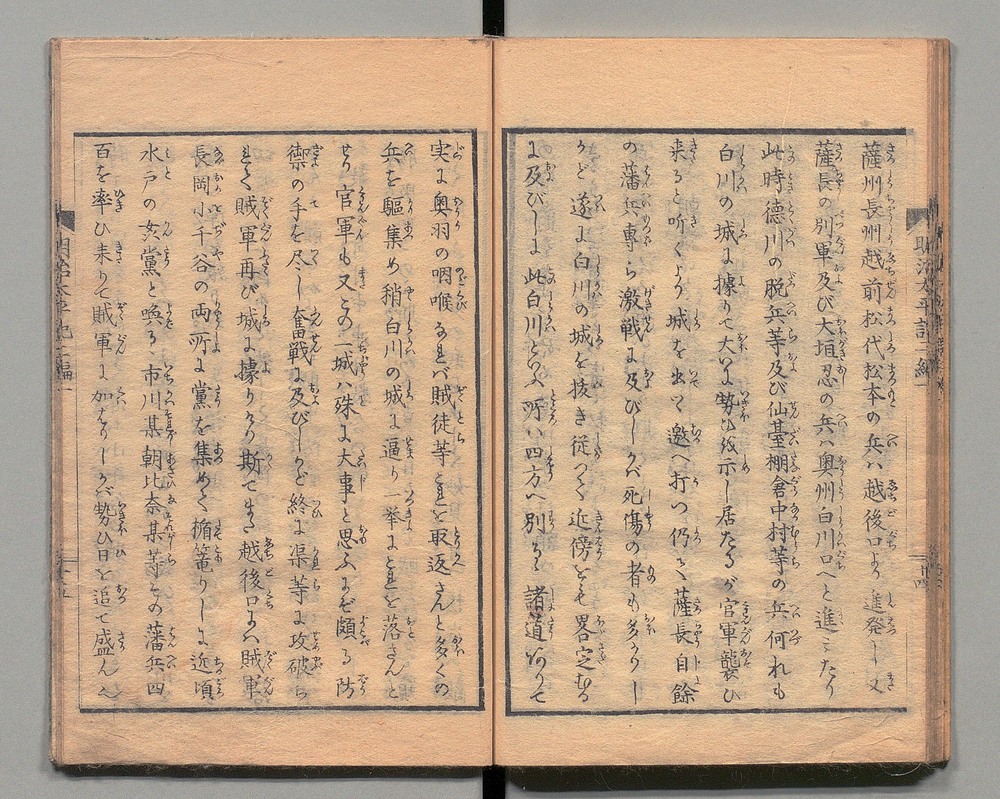 薩州長州越前松代松本の兵ハ越後口より進発し又
薩長の別軍及び大垣忍の兵ハ奥州白川口へと進ミたり
此時徳川の脱兵等及び仙臺棚倉中村等の兵何れも
白川の城に據りて大いに勢ひを示し居たるが官軍襲ひ
来ると听くより城を出て邀へ打つ仍て薩長自餘
の藩兵専ら激戦に及びしかバ死傷の者も多かりし
かど遂に白川の城を抜き従つて近傍をも畧定する
に及びしに此白川といふ所ハ四方へ別るゝ諸道ありて
実に奥羽の咽喉なれバ賊徒等これを取返さんと多くの
兵を驅集め稍白川の城に逼り一挙にこれを落さんと
せり官軍も又この一城ハ殊に大事と思ふにぞ頗る防
禦の手を尽し奮戦に及びしかど終に渠等に攻破ら
れて賊軍再び城に據りけり斯てまた越後口にハ賊軍
長岡小千谷の両所に黨を集めて楯篭りしに近頃
水戸の奸黨と喚るゝ市川某朝比奈某等その藩兵四
百を率ひ来りて賊軍に加はりしかバ勢ひ日を追て盛んに